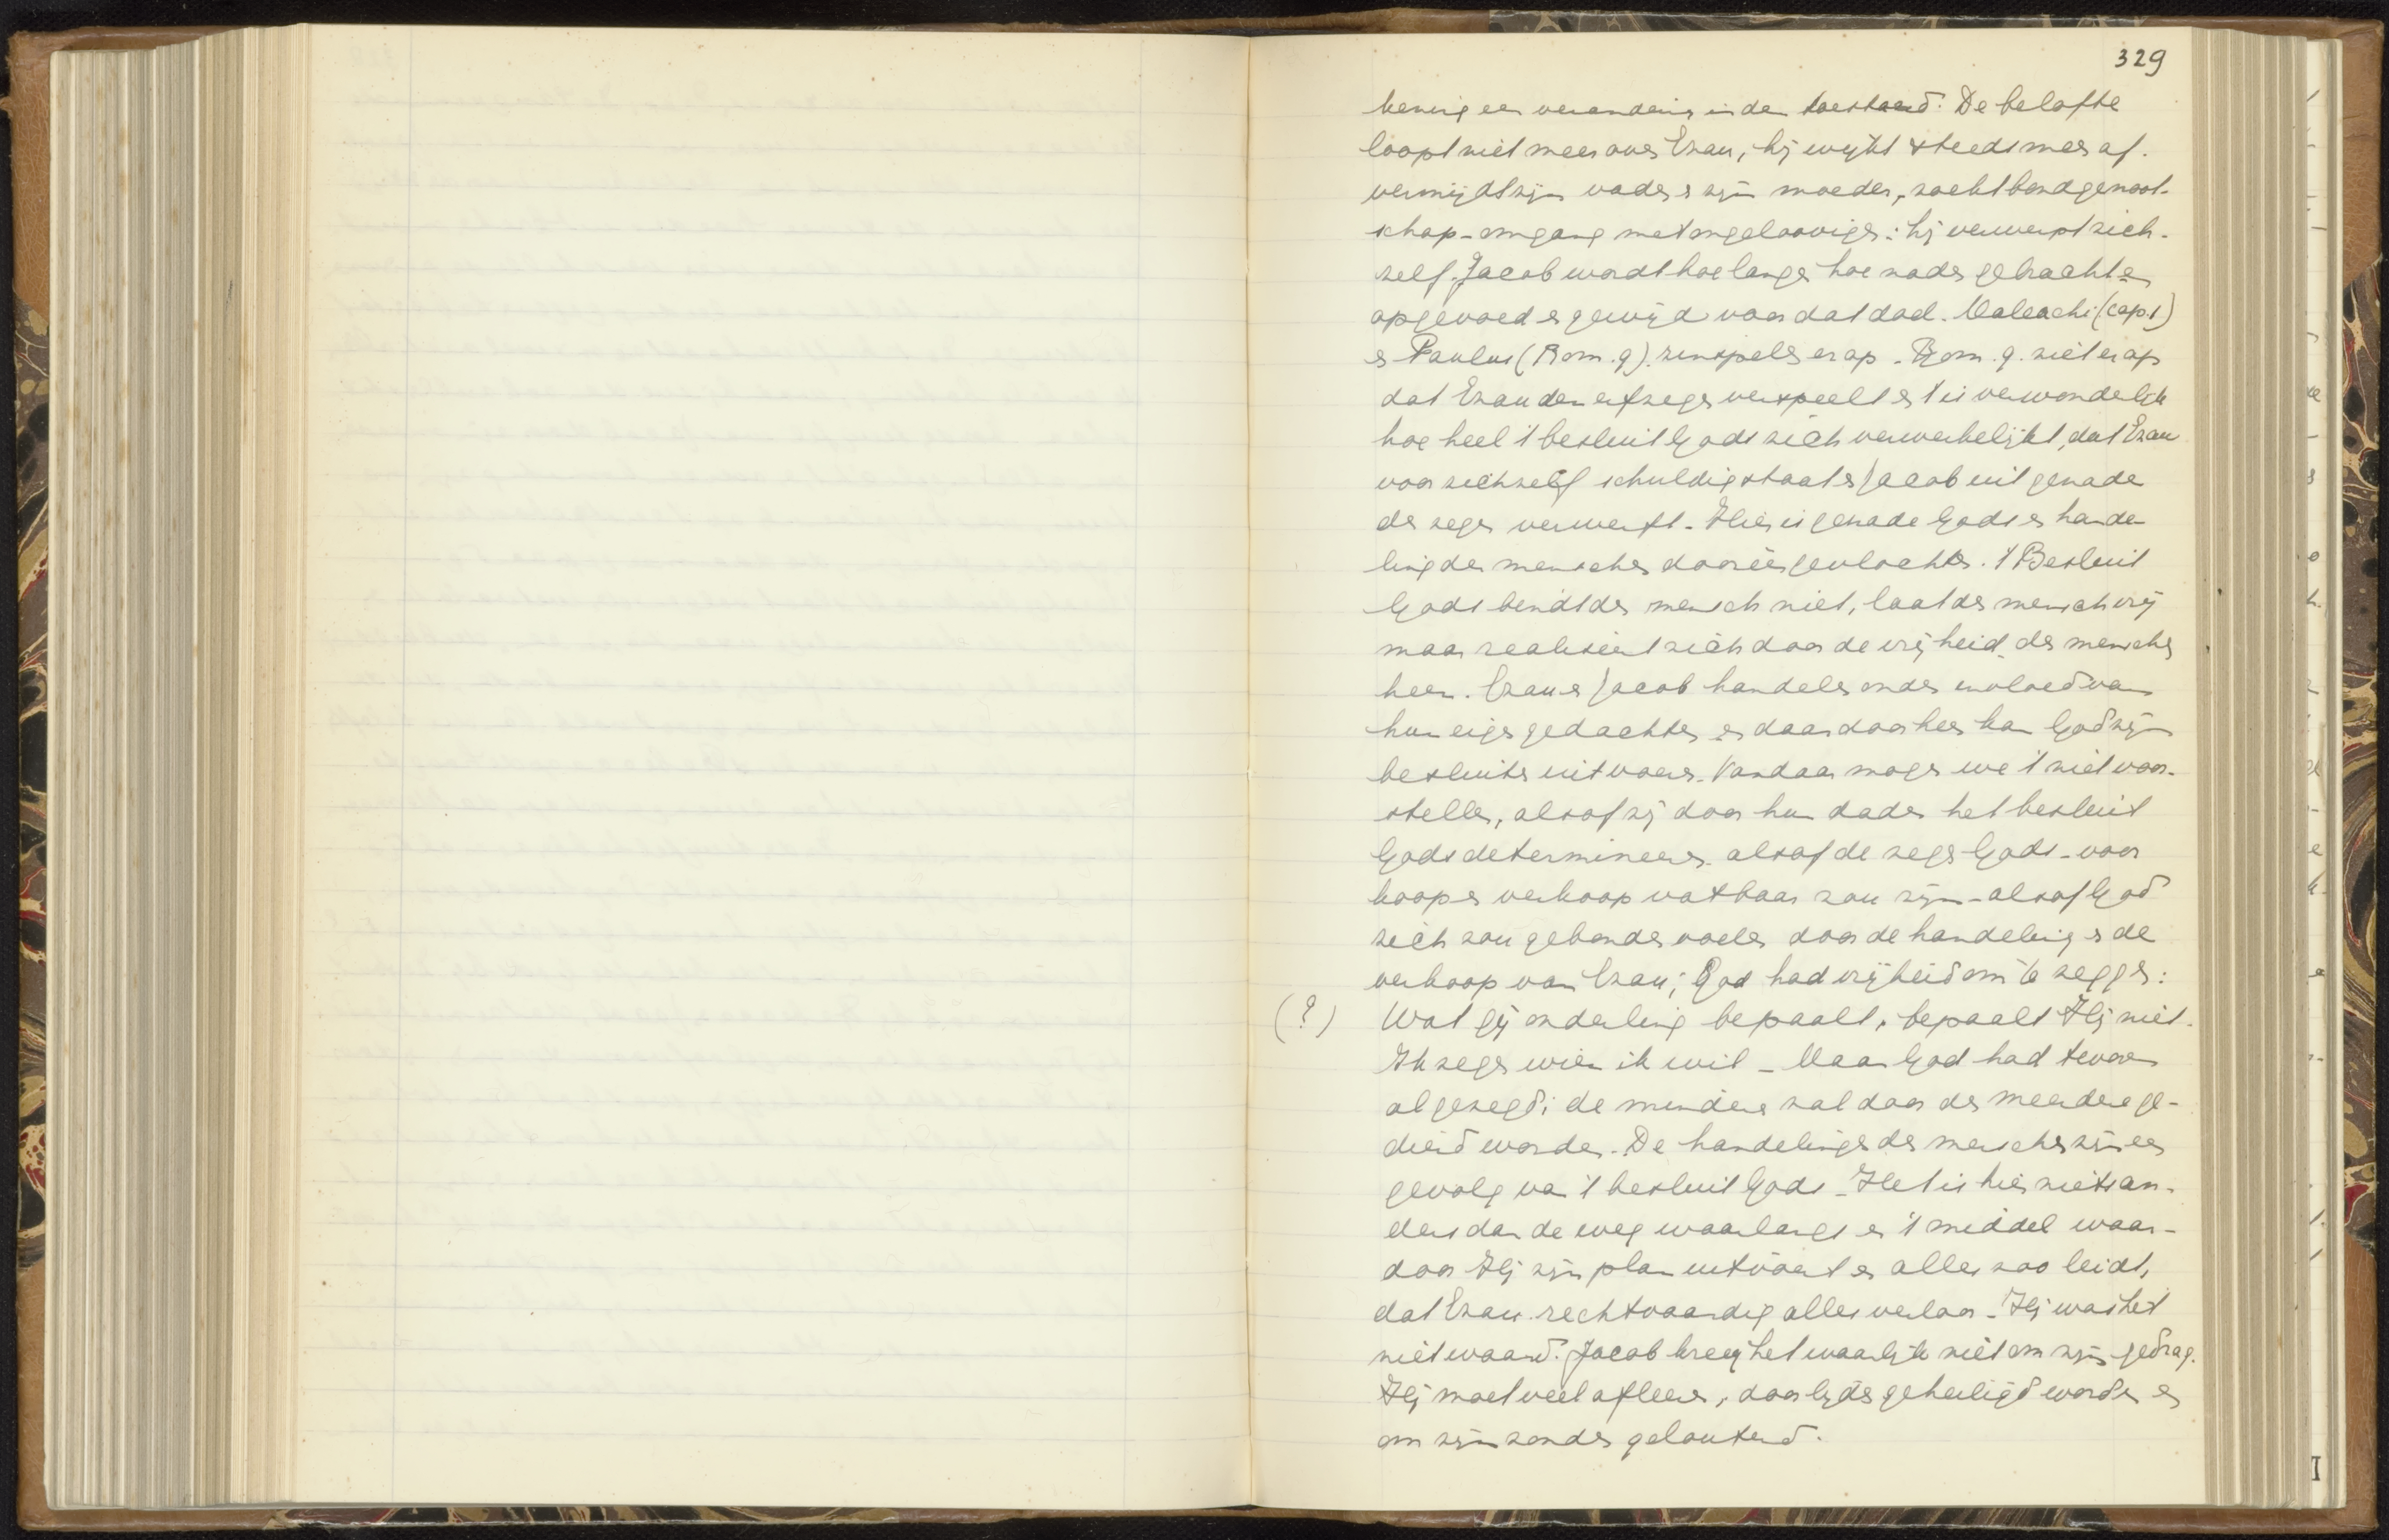 329
kening een verandering in den toestand. De belofte
loopt niet meer over Ezau, hij wijkt steeds meer af.
vermijdt zijn vader en zijn moeder, zoekt bondgenoot-
schap - omgang met ongeloovigen: hij verwerpt zich-
zelf. Jacob wordt hoe langer hoe nader gebracht en
opgevoed en gewijd voor dat doel. Maleachi (cap. 1)
en Paulus (Rom. 9). zinspelen er op. Rom. 9. ziet er op
dat Ezau den erfzegen verspeelt en 't is verwonderlijk
hoe heel 't besluit Gods zich verwerkelijkt, dat Ezau
voor zichzelf schuldig staat en Jacob uit genade
de zegen verwerft. Hier is genade Gods en hande-
ling der menschen dooréén gevlochten. 't Besluit
Gods bindt den mensch niet, laat den mensch vrij
maar realiseert zich door de vrijheid der menschen
heen. Ezau en Jacob handelen onder invloed van
hun eigen gedachten en daardoor heen kan God zijn
besluiten uitvoeren. Vandaar mogen we 't niet voor-
stellen, alsof zij door hun daden het besluit
Gods determineeren. alsof de zegen Gods - voor
koop en verkoop vatbaar zou zijn - alsof God
zich zou gebonden voelen door de handeling en de
verkoop van Ezau; God had vrijheid om te zeggen:
(?) Wat gij onderling bepaalt, bepaalt Hij niet.
Ik zegen wien ik wil - Maar God had tevoren
al gezegd: de mindere zal door de meerdere ge-
diend worden. De handelingen der menschen zijn een
gevolg van 't besluit Gods - Het is hier niets an-
ders dan de weg waarlangs en 't middel waar-
door Hij zijn plan uitvoert en alles zoo leidt,
dat Ezau rechtvaardig alles verloor - Hij was het
niet waard. Jacob kreeg het waarlijk niet om zijn gedrag.
Hij moet veel afleeren, door lijden geheiligd worden en
om zijn zonden gelouterd.